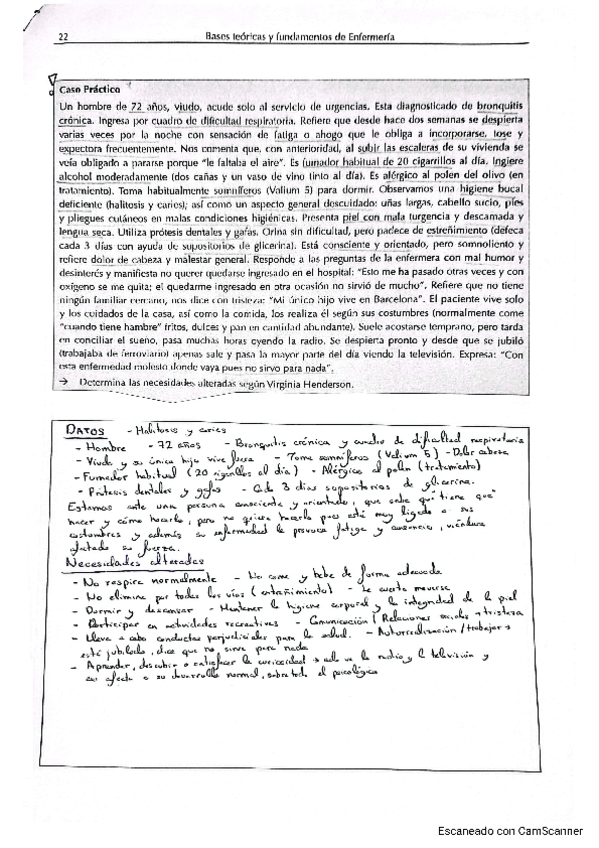 22 Bases teóricas y fundamentos de Enfermería
Caso Práctico
Un hombre de 72 años, viudo, acude solo al servicio de urgencias. Esta diagnosticado de bronquitis
crónica. Ingresa por cuadro de dificultad respiratoria. Refiere que desde hace dos semanas se despierta
varias veces por la noche con sensación de fatiga o ahogo que le obliga a incorporarse, tose y
expectora frecuentemente. Nos comenta que, con anterioridad, al subir las escaleras de su vivienda se
veía obligado a pararse porque "le faltaba el aire". Es fumador habitual de 20 cigarrillos al día. Ingiere
alcohol moderadamente (dos cañas y un vaso de vino tinto al día). Es alérgico al polen del olivo (en
tratamiento). Toma habitualmente somníferos (Valium 5) para dormir. Observamos una higiene bucal
deficiente (halitosis y caries); así como un aspecto general descuidado: uñas largas, cabello sucio, pies
y pliegues cutáneos en malas condiciones higiénicas. Presenta piel con mala turgencia y descamada y
lengua seca. Utiliza prótesis dentales y gafas. Orina sin dificultad, pero padece de estreñimiento (defeca
cada 3 días con ayuda de supositorios de glicerina). Está consciente y orientado, pero somnoliento y
refiere dolor de cabeza y malestar general. Responde a las preguntas de la enfermera con mal humor y
desinterés y manifiesta no querer quedarse ingresado en el hospital: "Esto me ha pasado otras veces y con
oxígeno se me quita; el quedarme ingresado en otra ocasión no sirvió de mucho". Refiere que no tiene
ningún familiar cercano, nos dice con tristeza: "Mi único hijo vive en Barcelona". El paciente vive solo
y los cuidados de la casa, así como la comida, los realiza él según sus costumbres (normalmente come
"cuando tiene hambre" fritos, dulces y pan en cantidad abundante). Suele acostarse temprano, pero tarda
en conciliar el sueño, pasa muchas horas oyendo la radio. Se despierta pronto y desde que se jubiló
(trabajaba de ferroviario) apenas sale y pasa la mayor parte del día viendo la televisión. Expresa: "Con
esta enfermedad molesto donde vaya pues no sirvo para nada".
→ Determina las necesidades alteradas según Virginia Henderson.
DATOS - Halitosis y caries
- Hombre - 72 años - Bronquitis crónica y cuadro de dificultad respiratoria
- Viudo y su único hijo vive fuera - Toma somníferos (Valium 5) - Dolor cabeza
- Fumador habitual (20 cigarrillos al día) - Alérgico al polen (tratamiento)
- Prótesis dentales y gafas - Cada 3 días supositorios de glicerina.
Estamos ante una persona consciente y orientada, que sabe qué "tiene que"
hacer y cómo hacerlo, pero no quiere hacerlo pues está muy ligado a sus
costumbres y además su enfermedad le provoca fatiga y
afectada su fuerza.
Necesidades alteradas
- No respira normalmente - No come y bebe de forma adecuada
- No elimina por todas las vías (estreñimiento) - Le cuesta moverse
- Dormir y descansar - Mantener la higiene corporal y la integridad de la piel
- Participar en actividades recreativas - Comunicación / Relaciones sociales → tristeza
- Lleva a cabo conductas perjudiciales para la salud. - Autorrealización / trabajar →
está jubilado, dice que no sirve para nada
- Aprender, descubrir o satisfacer la curiosidad → solo ve la radio y la televisión y
eso afecta a su desarrollo normal, sobre todo el psicológico
Escaneado con CamScanner